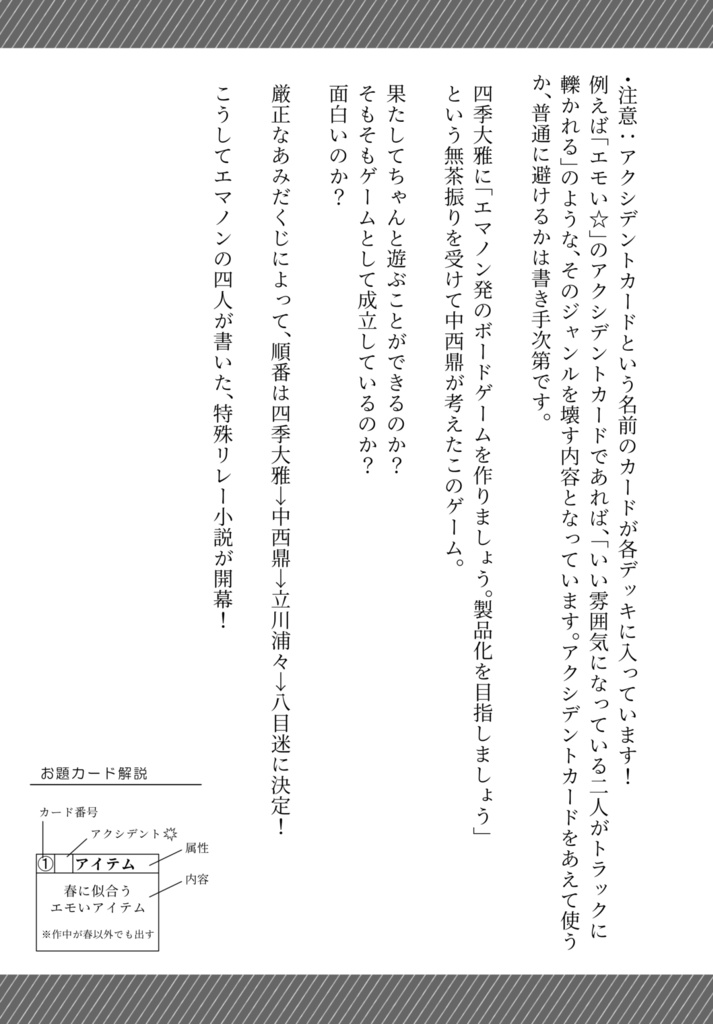 ・注意：アクシデントカードという名前のカードが各デッキに入っています！
例えば「エモい☆」のアクシデントカードであれば、「いい雰囲気になっている二人がトラックに
轢かれる」のような、そのジャンルを壊す内容となっています。アクシデントカードをあえて使う
か、普通に避けるかは書き手次第です。
四季大雅に「エマノン発のボードゲームを作りましょう。製品化を目指しましょう」
という無茶振りを受けて中西鼎が考えたこのゲーム。
果たしてちゃんと遊ぶことができるのか？
そもそもゲームとして成立しているのか？
面白いのか？
厳正なあみだくじによって、順番は四季大雅→中西鼎→立川浦々→八目迷に決定！
こうしてエマノンの四人が書いた、特殊リレー小説が開幕！
お題カード解説
カード番号
アクシデント
属性
内容
① アイテム
春に似合う
エモいアイテム
※作中が春以外でも出す